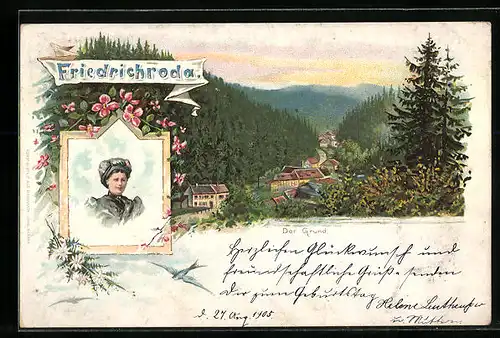 Friedrichroda.
Der Grund
Herzlichen Glückwunsch und
freundschaftliche Grüße senden
Dir zum Geburtstag
Helene
u. Mutter.
d. 27. Aug. 1905